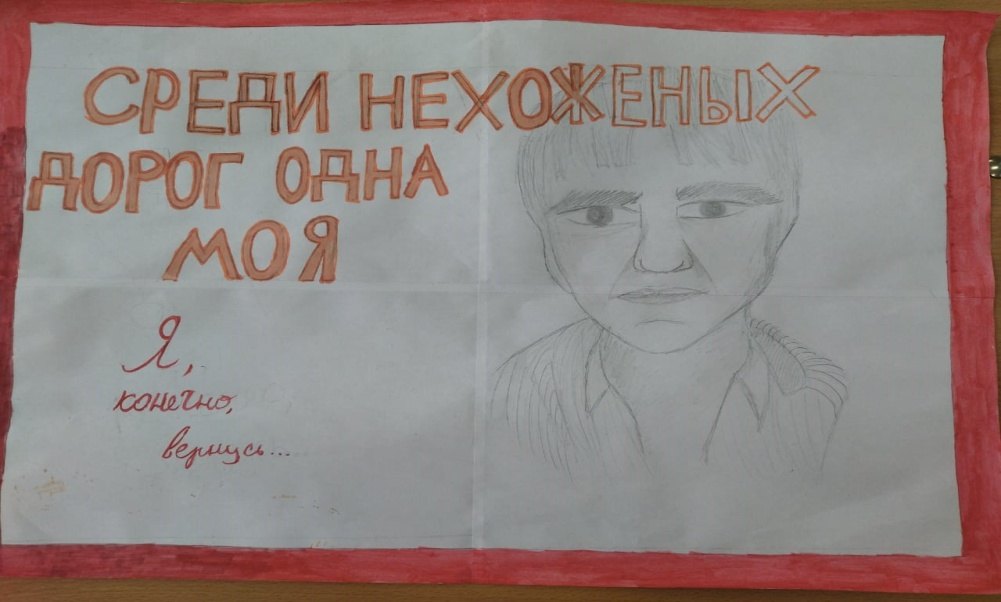 СРЕДИ НЕХОЖЕНЫХ
ДОРОГ ОДНА
МОЯ
Я,
конечно,
вернусь...